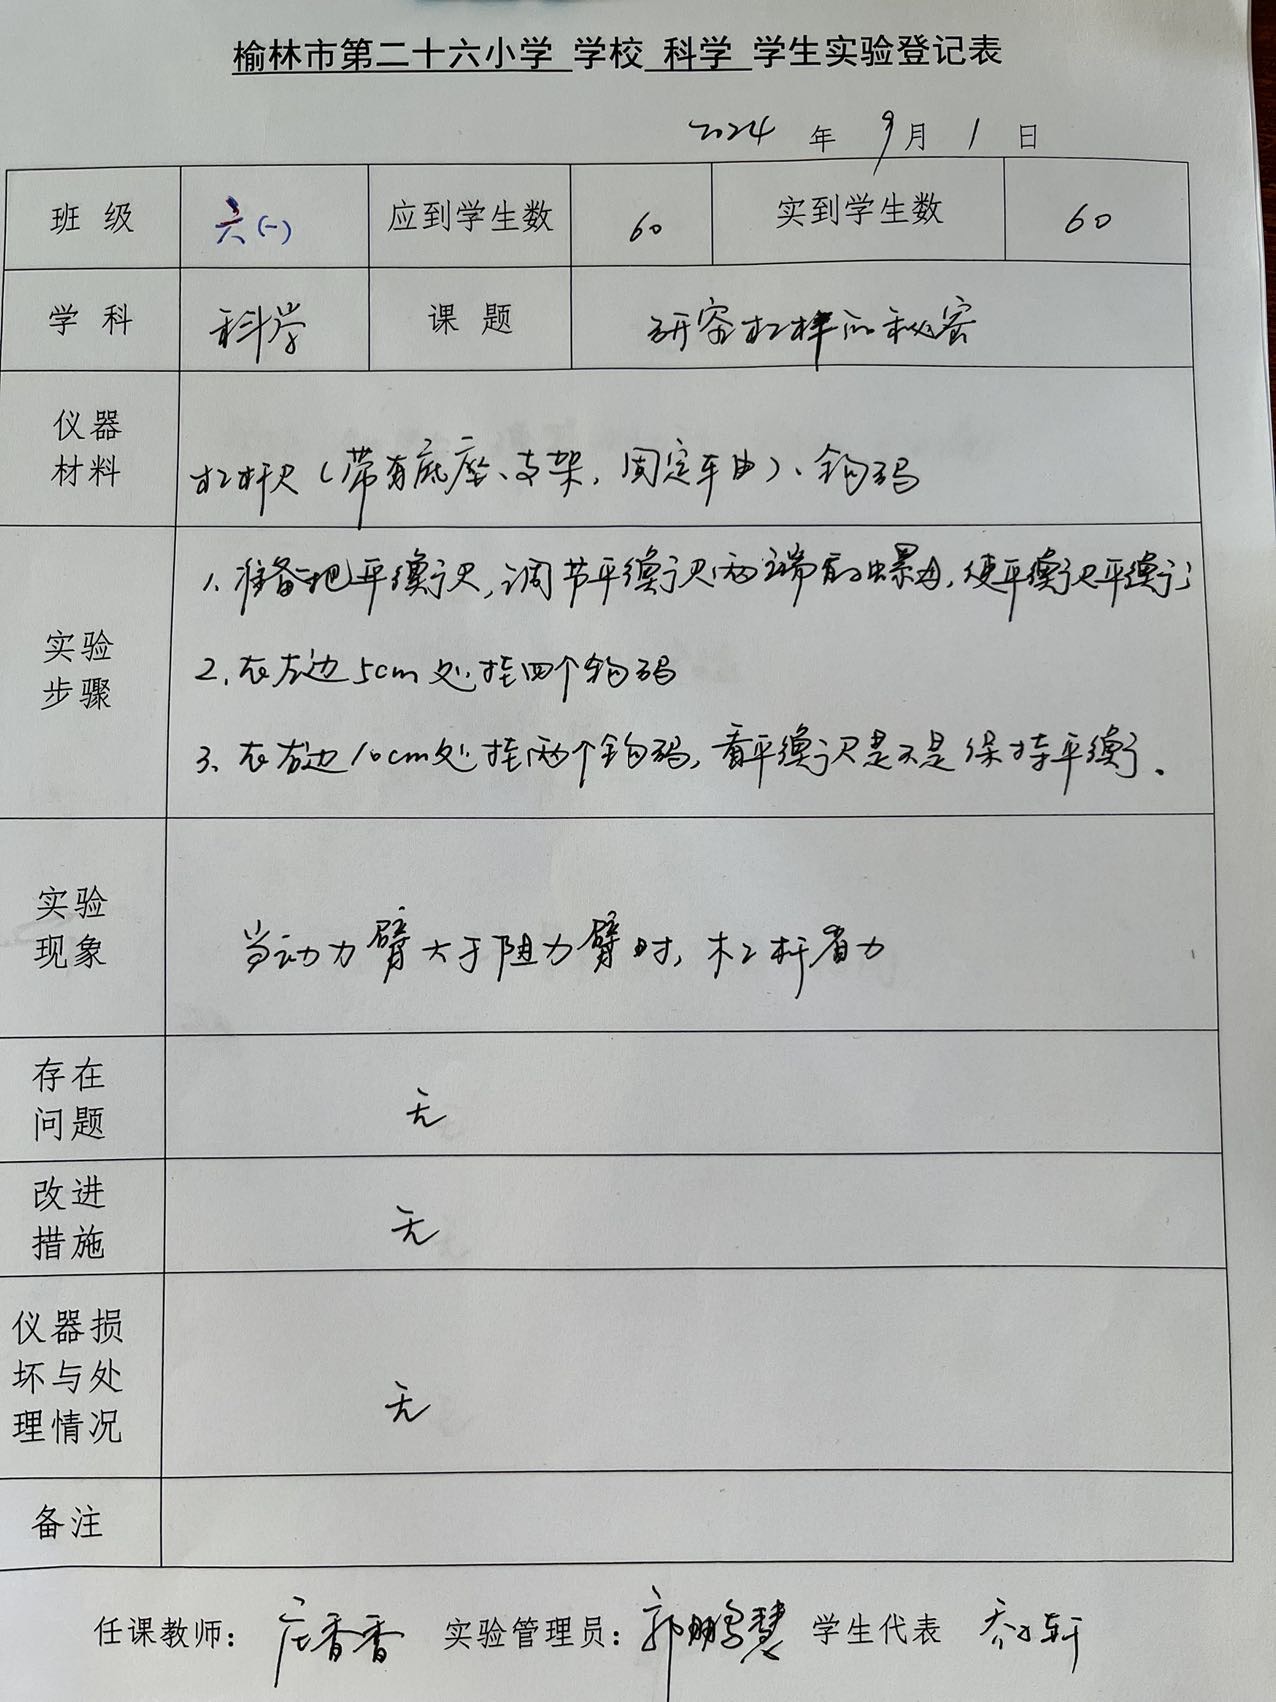 榆林市第二十六小学 学校 科学 学生实验登记表
2024 年 9 月 1 日
班 级 六(一) 应到学生数 60 实到学生数 60
学 科 科学 课 题 研究杠杆的秘密
仪器
材料
杠杆尺(带有底座、支架,固定车由)、钩码
实验
步骤
1. 准备一把平衡尺,调节平衡尺两端的螺母,使平衡尺平衡;
2. 在左边5cm处挂四个钩码
3、在右边10cm处挂两个钩码,看平衡尺是不是保持平衡.
实验
现象
当动力臂大于阻力臂时,杠杆省力
存在
问题
无
改进
措施
无
仪器损
坏与处
理情况
无
备注
任课教师: 庄香香 实验管理员: 郭鹏慧 学生代表 乔轩